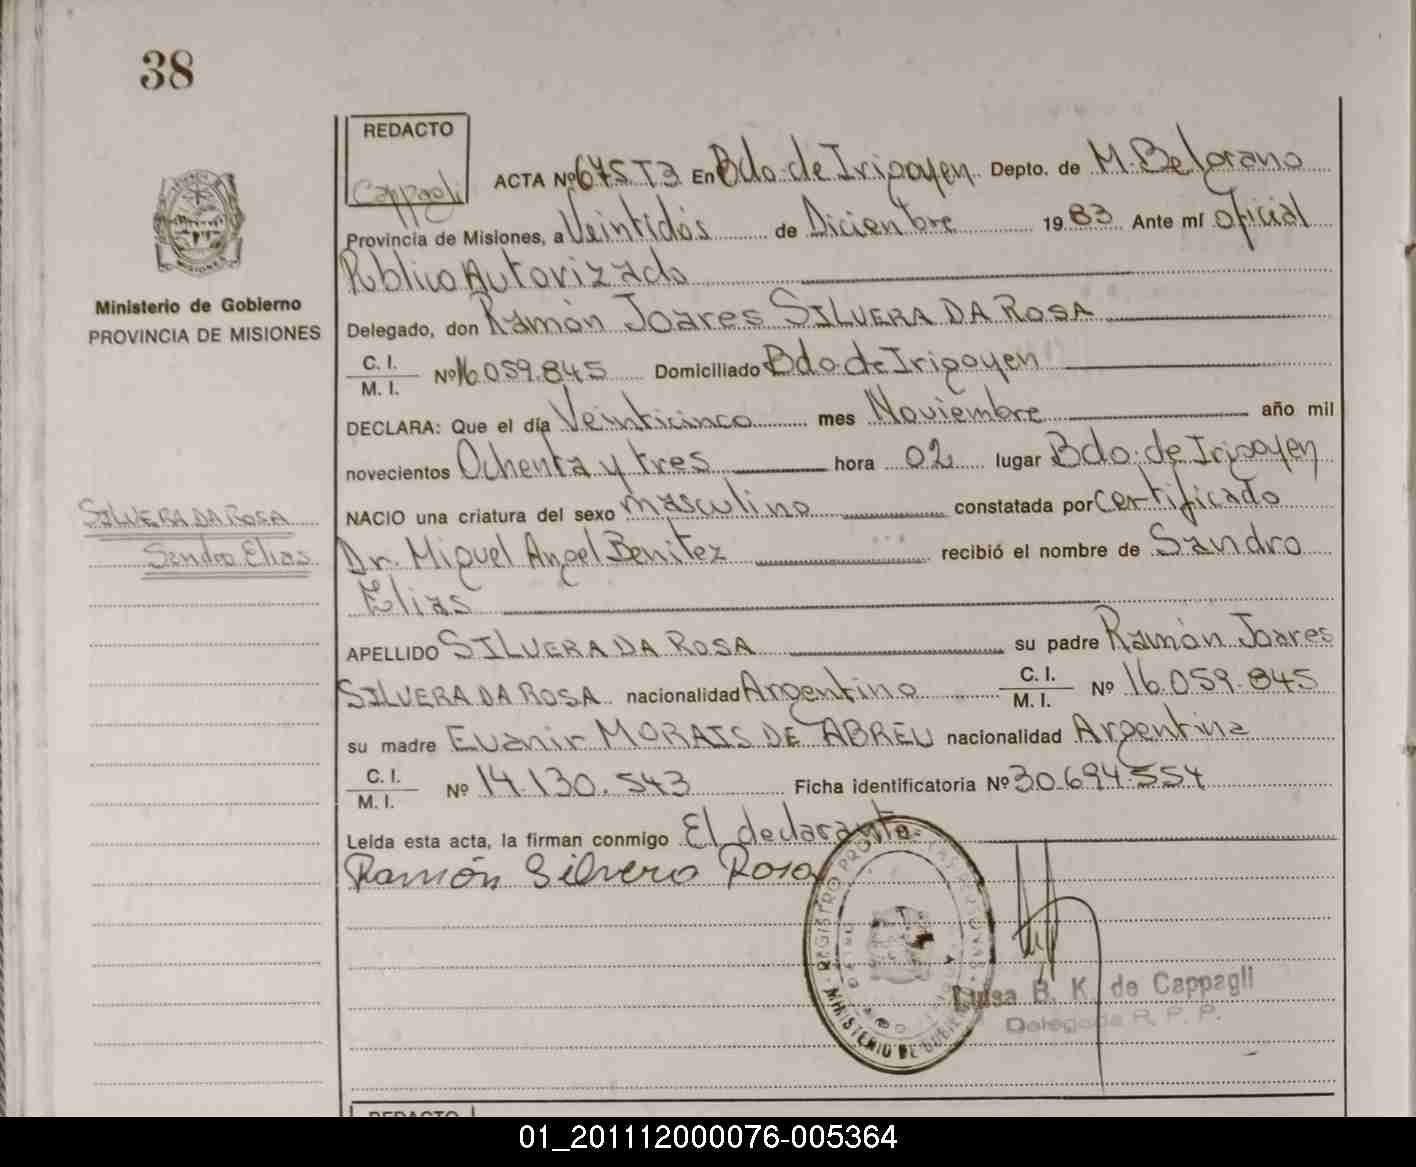 38
REDACTO
Cappagli
ACTA Nº 675 T3 En Bdo. de Irigoyen Depto. de M. Belgrano
Provincia de Misiones, a Veintidós de Diciembre 1983 Ante mí Oficial
Público Autorizado
Delegado, don Ramón Joares SILVERA DA ROSA
C. I.
M. I. Nº 16.059.845 Domiciliado Bdo. de Irigoyen
DECLARA: Que el día Veinticinco mes Noviembre año mil
novecientos Ochenta y tres hora 02 lugar Bdo. de Irigoyen
NACIO una criatura del sexo masculino constatada por certificado
Dr. Miguel Angel Benitez recibió el nombre de Sandro
Elias
APELLIDO SILVERA DA ROSA su padre Ramón Joares
SILVERA DA ROSA nacionalidad Argentino C. I. M. I. Nº 16.059.845
su madre Evanir MORAIS DE ABREU nacionalidad Argentina
C. I.
M. I. Nº 14.130.543 Ficha identificatoria Nº 30.694.554
Leída esta acta, la firman conmigo El declarante.
Ramón Silvero Rosa
Ministerio de Gobierno
PROVINCIA DE MISIONES
SILVERA DA ROSA
Sandro Elias
REGISTRO PROV. DE LAS PERSONAS
MINISTERIO DE GOBIERNO
Luisa B. K. de Cappagli
Delegada R. P. P.
REDACTO
01_201112000076-005364